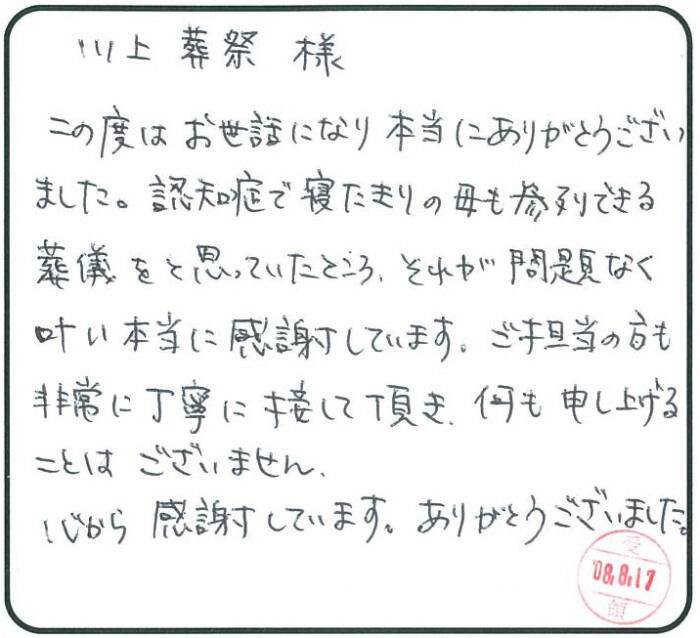 川上葬祭 様
この度はお世話になり本当にありがとうござい
ました。認知症で寝たきりの母も参列できる
葬儀をと思っていたところ、それが問題なく
叶い本当に感謝しています。ご担当の方も
非常に丁寧に接して頂き、何も申し上げる
ことはございません、
心から感謝しています。ありがとうございました。
受
'08.8.17
領